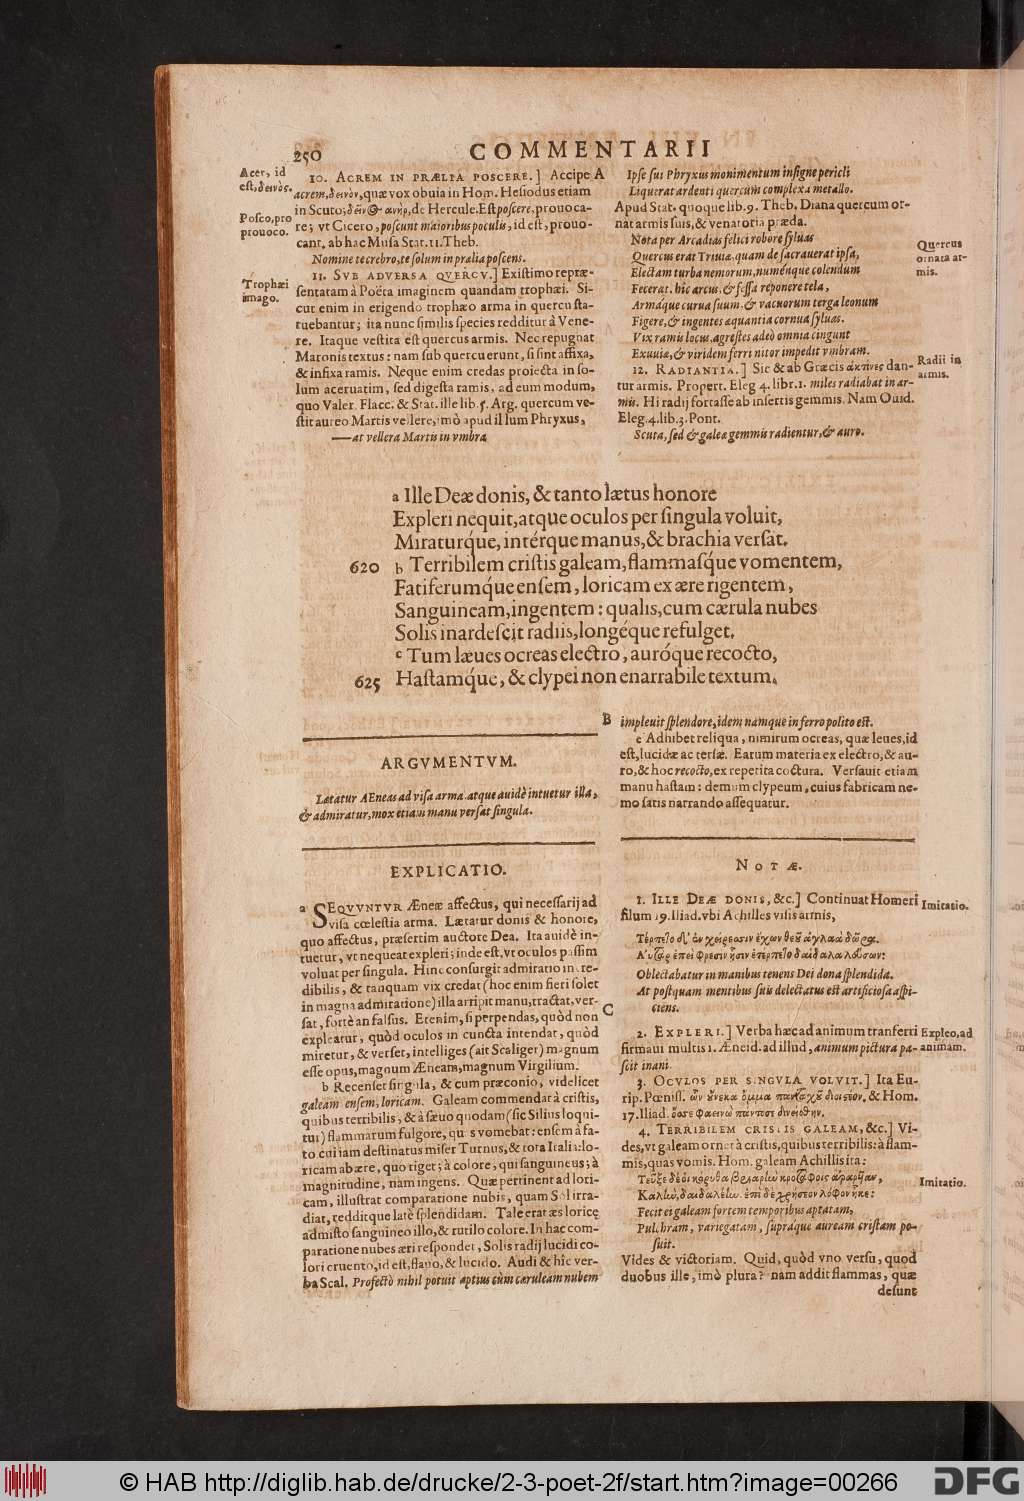 250
COMMENTARII
Acer, id
est, δεινὸς.
Posco, pro
prouoco.
Trophæi
imago.
10. ACREM IN PRÆLIA POSCERE.] Accipe
acrem, δεινὸν, quæ vox obuia in Hom. Hesiodus etiam
in Scuto; de Hercule. Est poscere, prouoca-
re; vt Cicero, poscunt maioribus poculis, id est, prouo-
cant, ab hac Musa Stat. 11. Theb.
Nomine te crebro, te solum in prælia poscens.
11. SVB ADVERSA QVERCV.] Existimo repræ-
sentatam à Poëta imaginem quandam trophæi. Si-
cut enim in erigendo trophæo arma in quercu sta-
tuebantur; ita nunc similis species redditur à Vene-
re. Itaque vestita est quercus armis. Nec repugnat
Maronis textus: nam sub quercu erunt, si sint affixa,
& infixa ramis. Neque enim credas proiecta in so-
lum aceruatim, sed digesta ramis, ad eum modum,
quo Valer. Flacc. & Stat. ille lib. 5. Arg. quercum ve-
stit aureo Martis vellere, imò apud illum Phryxus,
—at vellera Martis in vmbra
A
Ipse sui Phryxus monimentum insigne pericli
Liquerat ardenti quercum complexa metallo.
Apud Stat. quoque lib. 9. Theb. Diana quercum or-
nat armis suis, & venatoria præda.
Nota per Arcadias felici robore syluas
Quercus erat Triuiæ, quam desacrauerat ipsa,
Electam turba nemorum, numénque colendum
Fecerat. hic arcus, & fessa reponere tela,
Armáque curua suum, & vacuorum terga leonum
Figere, & ingentes æquantia cornua syluas.
Vix ramis locus, agrestes adeò omnia cingunt
Exuuiæ, & viridem ferri nitor impedit vmbram.
12. RADIANTIA.] Sic & ab Græcis ἀκτῖνες dan-
tur armis. Propert. Eleg 4. libr. 1. miles radiabat in ar-
mis. Hi radij fortasse ab insertis gemmis. Nam Ouid.
Eleg. 4. lib. 3. Pont.
Scuta, sed & galeæ gemmis radientur, & auro.
Quercus
ornata ar-
mis.
Radii in
armis.
a Ille Deæ donis, & tanto lætus honore
Expleri nequit, atque oculos per singula voluit,
Miraturque, intérque manus, & brachia versat.
620 b Terribilem cristis galeam, flammasq́ue vomentem,
Fatiferumq́ue ensem, loricam ex ære rigentem,
Sanguineam, ingentem: qualis, cum cærula nubes
Solis inardescit radiis, longéque refulget.
c Tum læues ocreas electro, auróque recocto,
625 Hastamq́ue, & clypei non enarrabile textum.
ARGVMENTVM.
Lætatur AEneas ad visa arma. atque auidè intuetur illa,
& admiratur, mox etiam manu versat singula.
EXPLICATIO.
a SEQVVNTVR Æneæ affectus, qui necessarij ad
visa cœlestia arma. Lætatur donis & honore,
quo affectus, præsertim auctore Dea. Ita auidè in-
tuetur, vt nequeat expleri; inde est, vt oculos passim
voluat per singula. Hinc consurgit admiratio incre-
dibilis, & tanquam vix credat (hoc enim fieri solet
in magna admiratione) illa arripit manu, tractat, ver-
sat, fortè an falsus. Etenim, si perpendas, quòd non
expleatur, quòd oculos in cuncta intendat, quòd
miretur, & verset, intelliges (ait Scaliger) magnum
esse opus, magnum Æneam, magnum Virgilium.
b Recenset singula, & cum præconio, videlicet
galeam ensem, loricam. Galeam commendat à cristis,
quibus terribilis, & à sæuo quodam (sic Silius loqui-
tur) flammarum fulgore, quas vomebat: ensem à fa-
to cui iam destinatus miser Turnus, & tota Italia: lo-
ricam ab ære, quo riget; à colore, qui sanguineus; à
magnitudine, nam ingens. Quæ pertinent ad lori-
cam, illustrat comparatione nubis, quam Sol irra-
diat, redditque latè splendidam. Tale erat æs loricę
admisto sanguineo illo, & rutilo colore. In hac com-
paratione nubes æri respondet, Solis radij lucidi co-
lori cruento, id est, flauo, & lucido. Audi & hîc ver-
ba Scal. Profectò nihil potuit aptius cùm cæruleam nubem
B
impleuit splendore, idem namque in ferro posito est.
c Adhibet reliqua, nimirum ocreas, quæ leues, id
est, lucidæ ac tersæ. Earum materia ex electro, & au-
ro, & hoc recocto, ex repetita coctura. Versauit etiam
manu hastam: demum clypeum, cuius fabricam ne-
mo satis narrando assequatur.
NOTÆ.
1. ILLE DEÆ DONIS, &c.] Continuat Homeri
filum 19. Iliad. vbi Achilles visis armis,
Τέρπετο δ' ἐν χείρεσσιν ἔχων θεοῦ ἀγλαὰ δῶρα.
Αὐτὰρ ἐπεὶ φρεσὶν ᾗσιν ἐτέρπετο δαίδαλα λεύσσων:
Oblectabatur in manibus tenens Dei dona splendida.
At postquam mentibus suis delectatus est artificiosa aspi-
ciens.
C
2. EXPLERI.] Verba hæc ad animum tranferri
firmaui multis 1. Æneid. ad illud, animum pictura pa-
scit inani
3. OCVLOS PER SINGVLA VOLVIT.] Ita Eu-
rip. Pœniss. ὧν οὕνεκα ὄμμα πανταχοῦ διοιστέον. & Hom.
17. Iliad. ὄσσε φαεινὼ πάντοσε δινείσθην.
4. TERRIBILEM CRISTIS GALEAM, &c.] Vi-
des, vt galeam ornet à cristis, quibus terribilis: à flam-
mis, quas vomis. Hom. galeam Achillis ita:
Τεῦξε δέ οἱ κόρυθα βριαρὴν κροτάφοις ἀραρυῖαν,
Καλὴν, δαιδαλέην. ἐπὶ δὲ χρύσεον λόφον ἧκε:
Fecit ei galeam fortem temporibus aptatam,
Pulchram, variegatam, supráque auream cristam po-
suit.
Vides & victoriam. Quid, quòd vno versu, quod
duobus ille, imò plura? nam addit flammas, quæ
desunt
Imitatio.
Expleo, ad
animam.
Imitatio.
© HAB http://diglib.hab.de/drucke/2-3-poet-2f/start.htm?image=00266
DFG